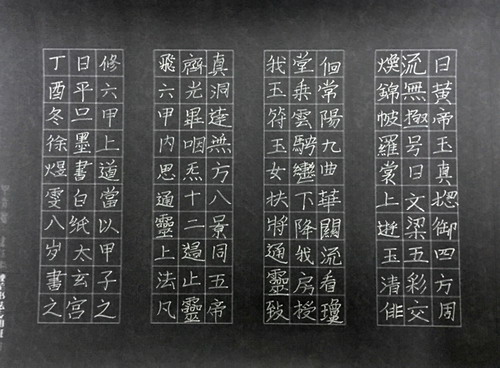 曰黃帝玉真摠御四方周
流無極号曰文梁五彩交
煥錦帔羅裳上遊玉清俳
佪常陽九曲華關流看瓊
堂乘雲騁轡下降我房授
我玉符玉女扶將通靈致
真洞達無方八景同五帝
齊光畢咽炁十二過止靈
飛六甲内思通靈上法凡
修六甲上道當以甲子之
日平旦墨書白紙太玄宮
丁酉冬徐煜雯八岁書之